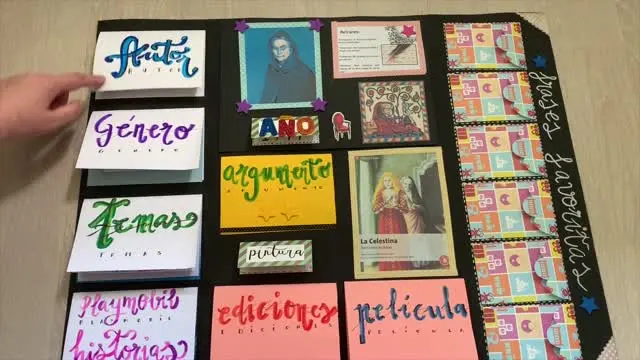 Autor
AUTOR
Género
GENERO
Temas
TEMAS
Playmobil
PLAYMOBIL
historias
AÑO
argumento
ARGUMENTO
pintura
ediciones
EDICIONES
Refranes:
La Celestina
película
PELÍCULA
frases favoritas